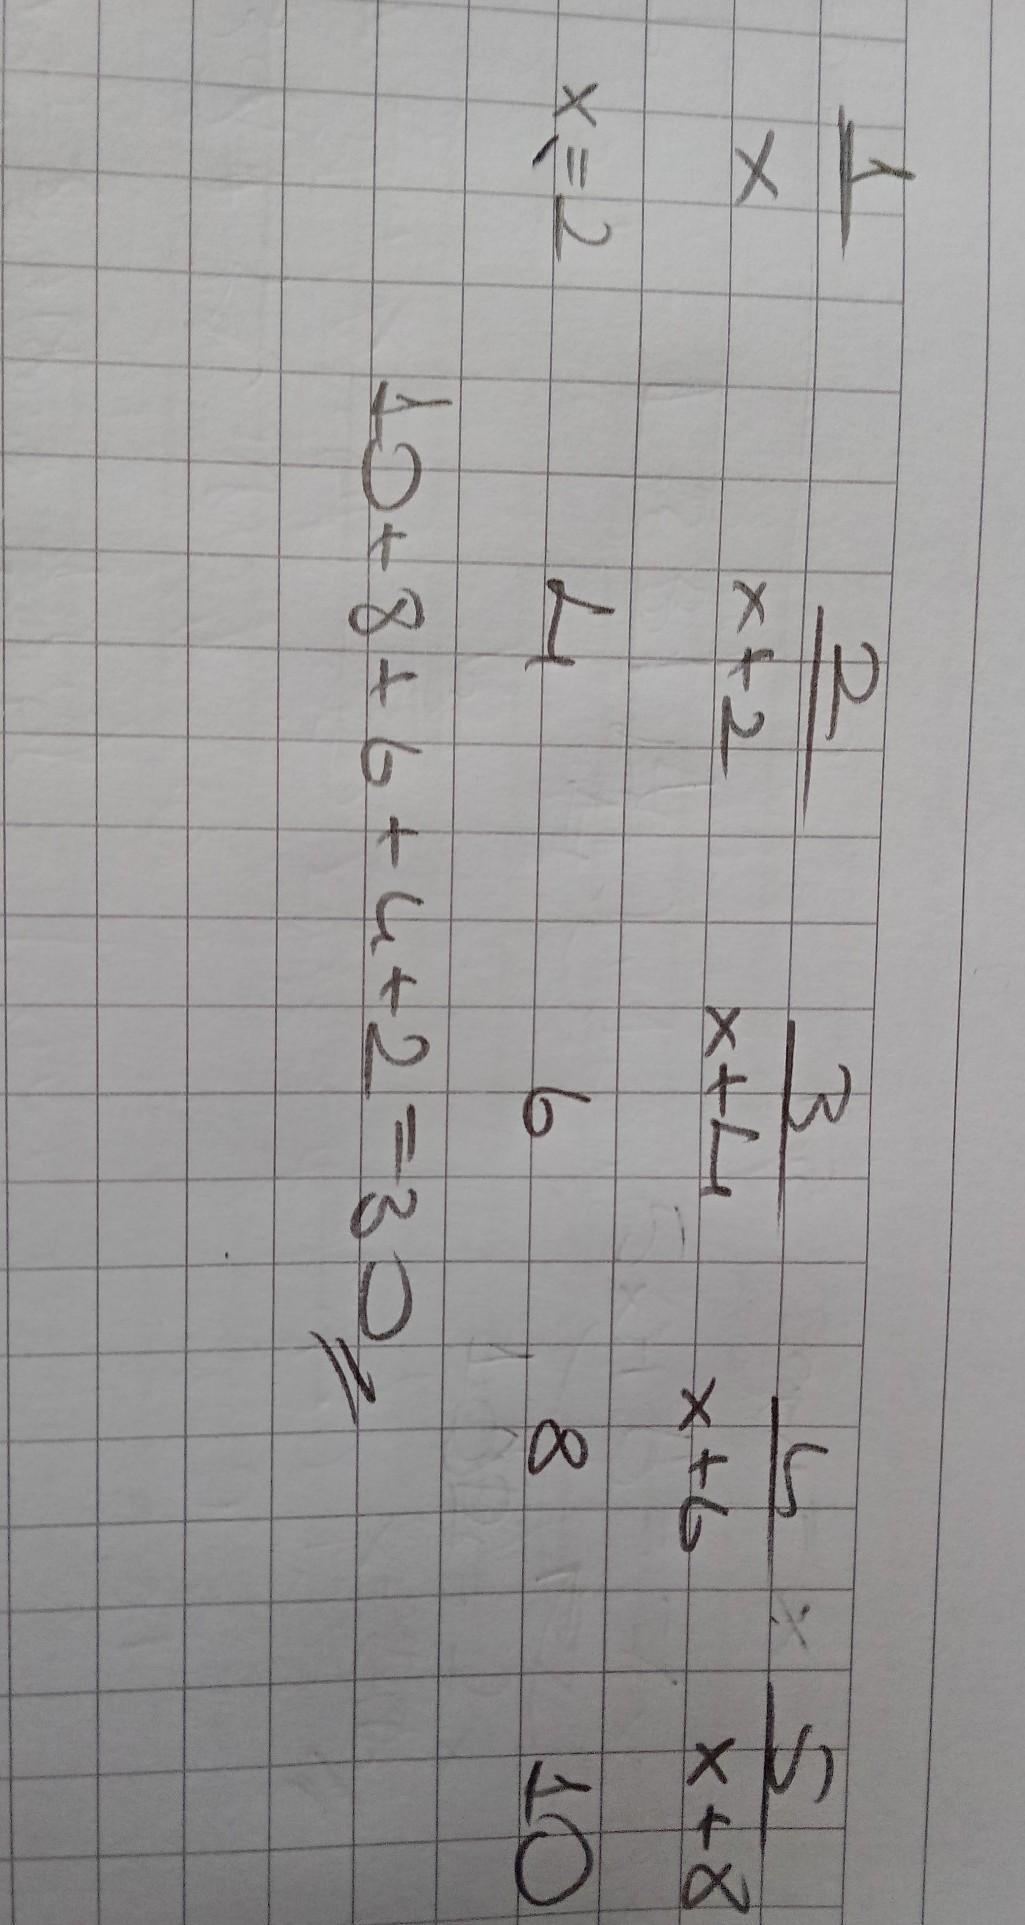 1 2 3 4 5
x x+2 x+4 x+6 x+8
x=2 4 6 8 10
10+8+6+4+2=30